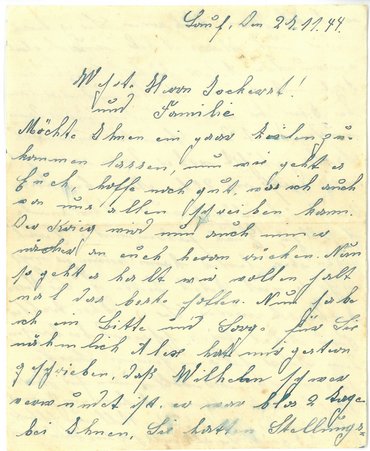 Lauf, Den 24.11.44.
Wert. Herrn Jockerst!
und Familie
Möchte Ihnen ein paar Zeilen zu-
kommen lassen, nun wie geht es
Euch, hoffe noch gut, was ich auch
von uns allen schreiben kann.
Der Krieg wird nun auch immer
nächer an euch heran rücken. Nun
so geht es halt wir wollen halt
mal das beste hoffen. Nun habe
ich ein Bitte und Sorge für Sie
nähmlich Alex hat mir gestern
geschrieben, daß Wilhelm schwer
verwundet ist. er war blos 2 Tage
bei Ihnen, Sie hatten Stellungs=